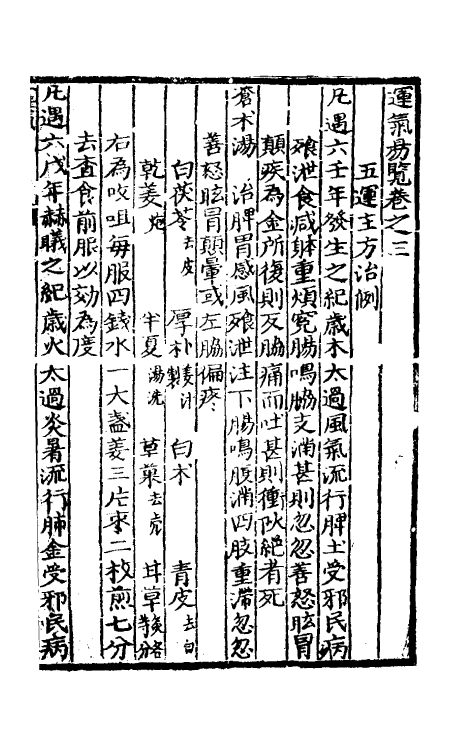 運氣易覽卷之三
五運主方治例
凡遇六壬年發生之紀歲木太過風氣流行脾土受邪民病
飧泄食减躰重煩寃腸鳴脇支滿甚則忽忽善怒眩冒
顛疾為金所復則反脇痛而吐甚則衝阦絶者死
蒼术湯 治脾胃感風飧泄注下腸鳴腹滿四肢重滯忽忽
善怒眩冒顛暈或左脇偏疼
白茯苓去皮 厚朴姜汁製 白术 青皮去白
乾姜炮 半夏湯洗 草菓去壳 甘草炙各等分
右為㕮咀每服四錢水一大盞姜三片枣二枚煎七分
去渣食前服以効為度
凡遇六戊年赫曦之紀歲火太過炎暑流行肺金受邪民病